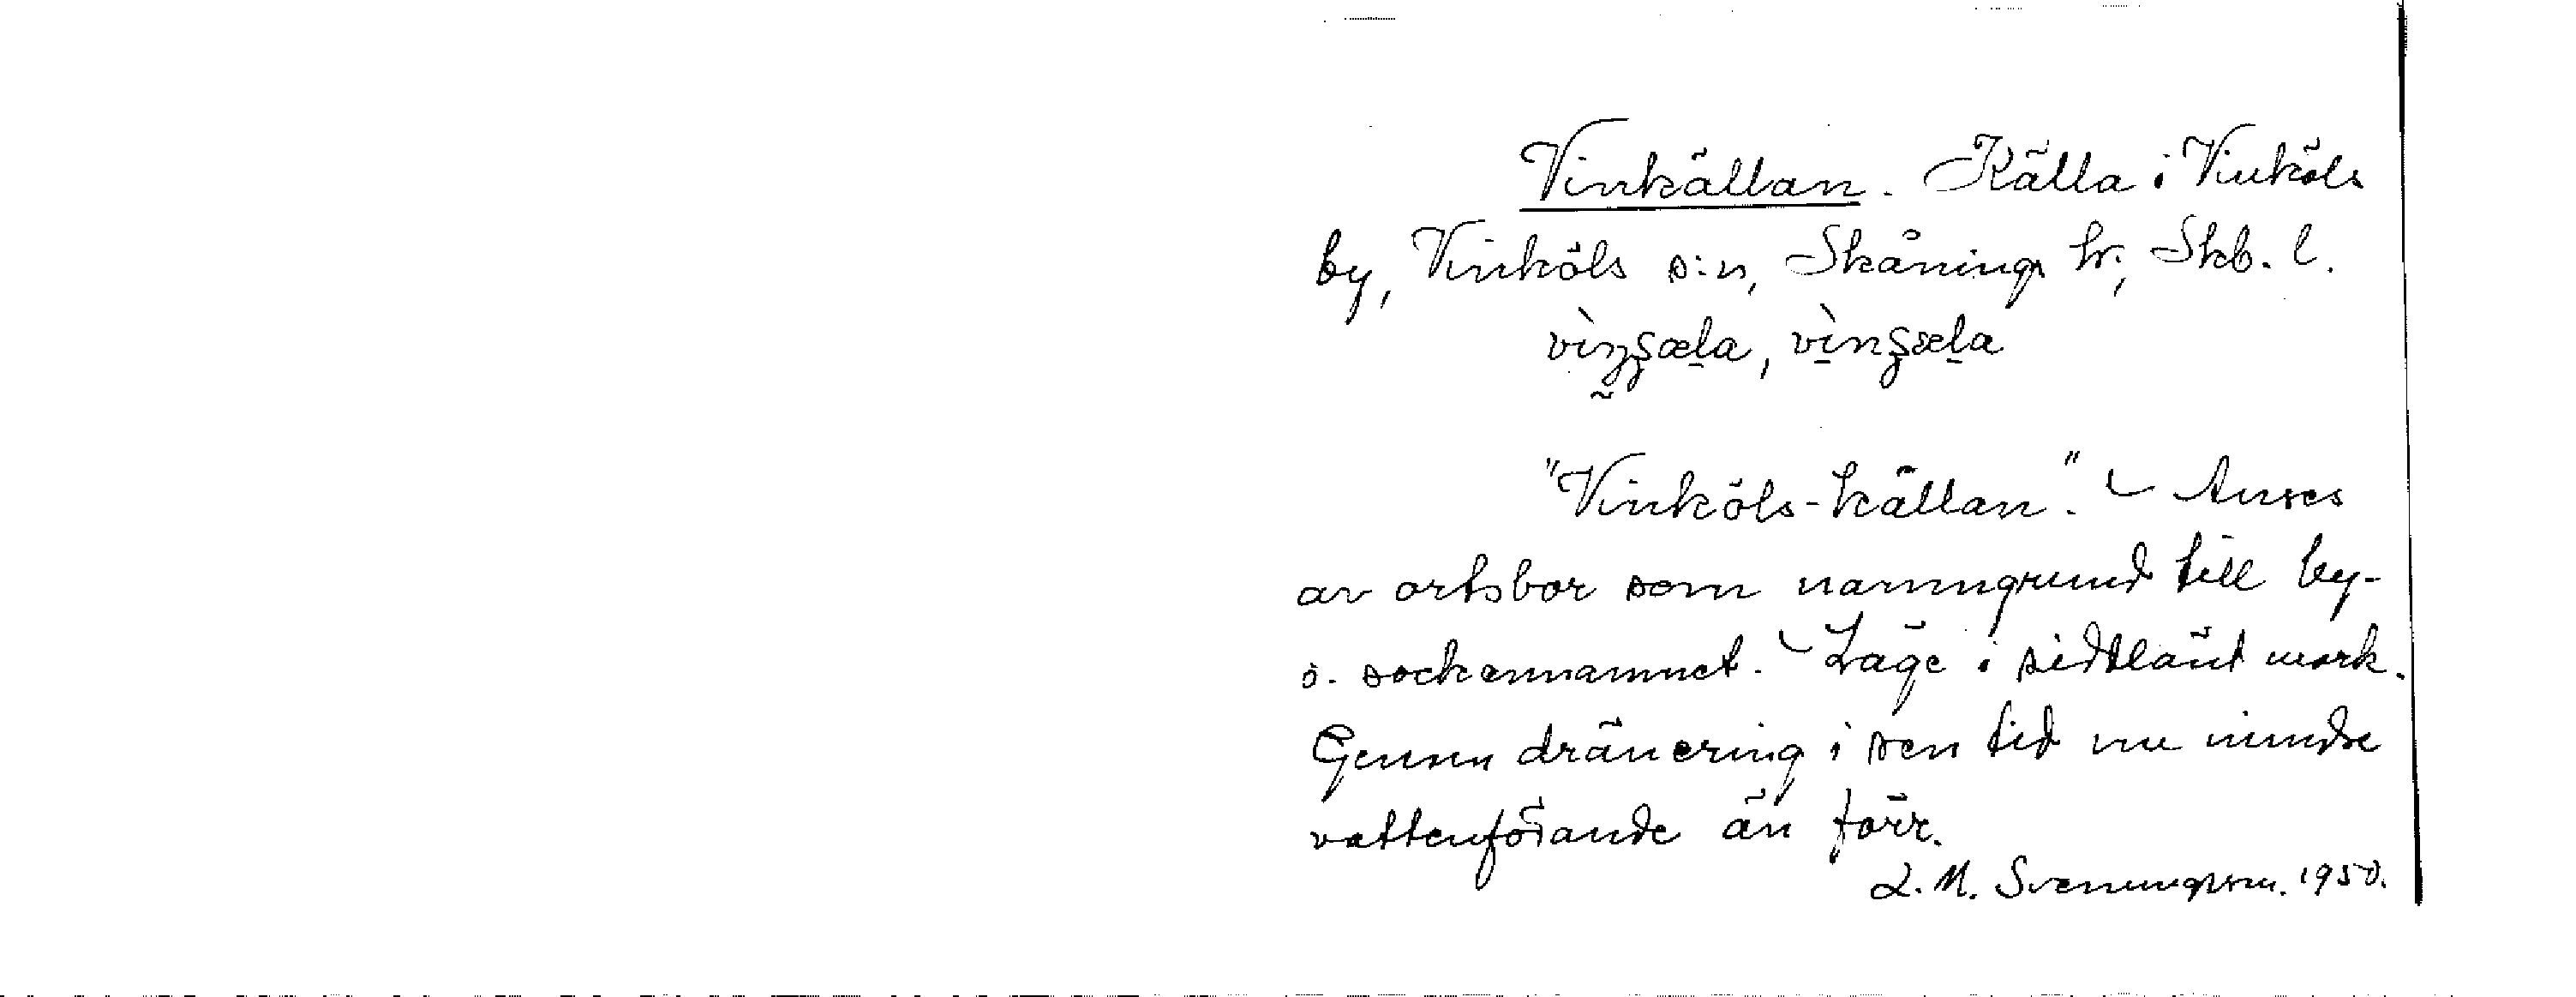 Vinkällan. Källa i Vinköls
by, Vinköls s:n, Skånings hr, Skb. l.
"Vinköls-källan". Anses
av ortsbor som namngrund till by-
o. sockennamnet. Läge i sidtlänt mark.
Genom dränering i sen tid nu mindre
vattenförande än förr.
L. M. Svenungsson. 1950.